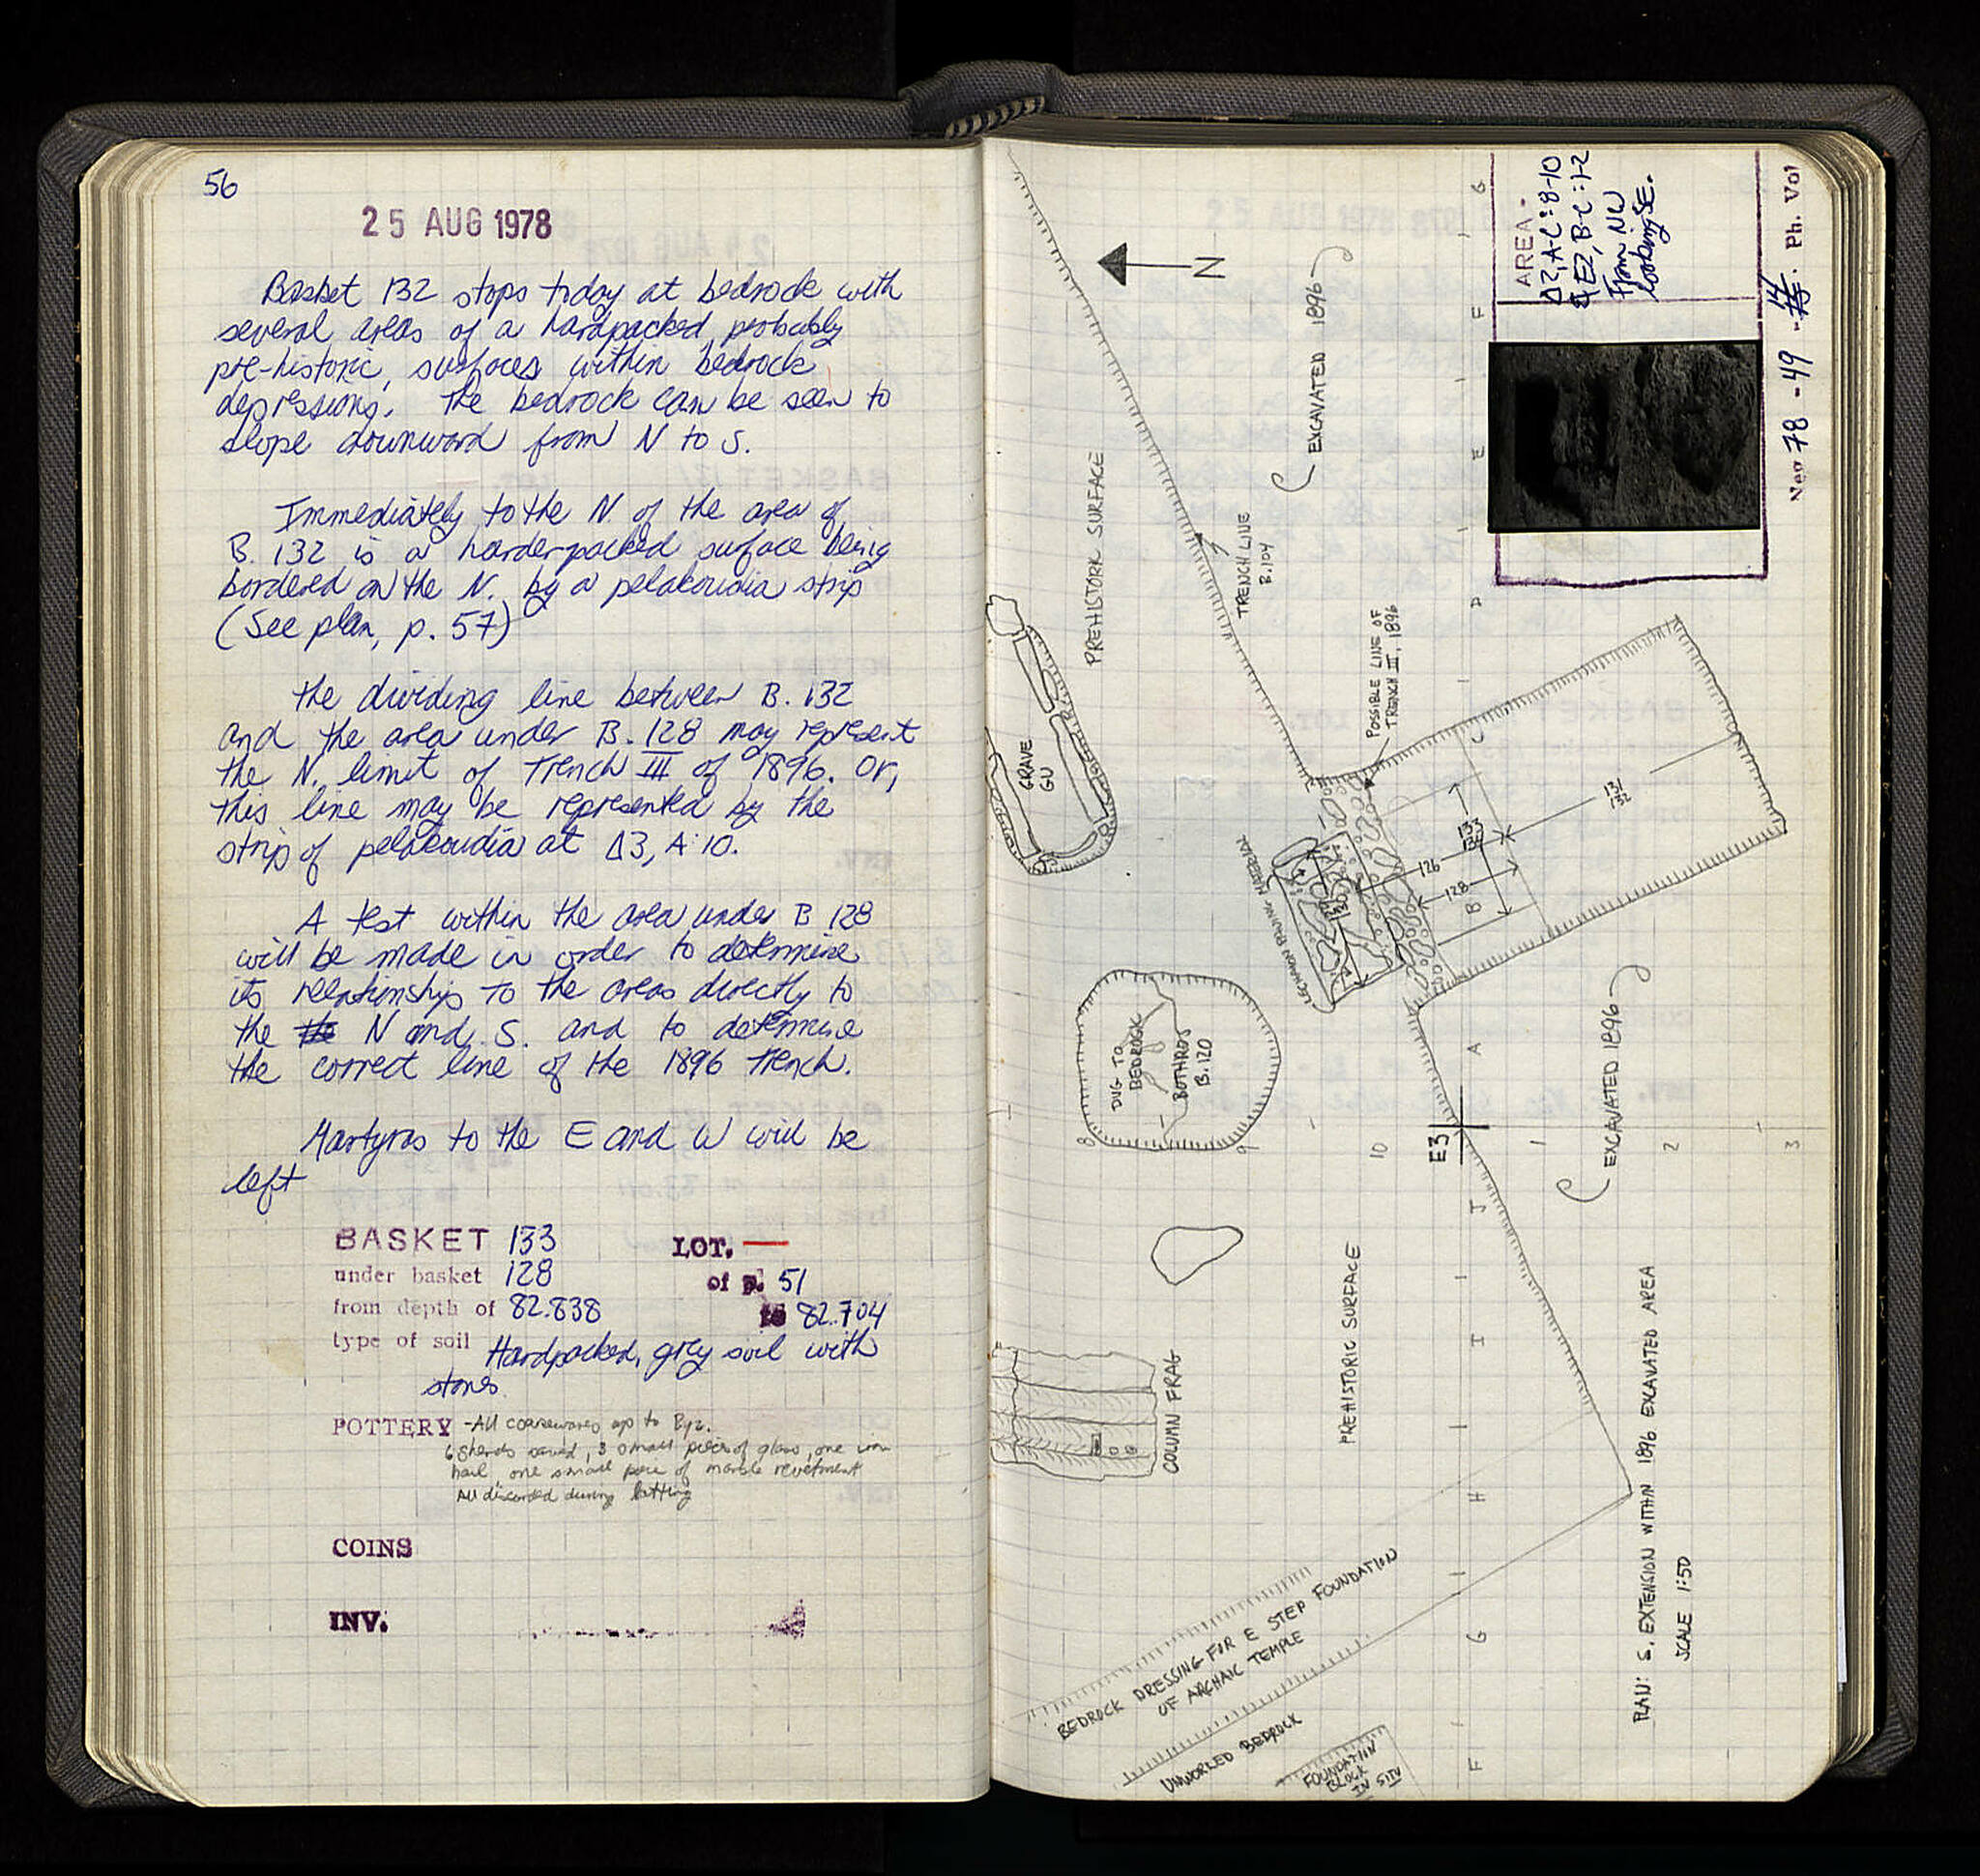 56
25 AUG 1978
Basket 132 stops today at bedrock with
several areas of a hardpacked, probably
pre-historic, surfaces within bedrock
depressions. The bedrock can be seen to
slope downward from N to S.
Immediately to the N. of the area of
B. 132 is a harder-packed surface being
bordered on the N. by a pelakoudia strip
(See plan, p. 57)
The dividing line between B. 132
and the area under B. 128 may represent
the N. limit of Trench III of 1896. Or,
this line may be represented by the
strip of pelakoudia at Δ3, A:10.
A test within the area under B 128
will be made in order to determine
its relationship to the areas directly to
the the N and S. and to determine
the correct line of the 1896 trench.
Martyros to the E and W will be
left
BASKET 133 LOT. —
under basket 128 of p. 51
from depth of 82.838 to 82.704
type of soil Hardpacked, grey soil with
stones.
POTTERY - All coarsewares up to Byz.
6 sherds saved, 3 small pieces of glass, one iron
nail, one small piece of marble revetment
All discarded during lotting
COINS
INV.
AREA -
Δ2, A-C:8-10
& E2, B-C:1-2
From NW
looking SE.
Neg 78 - 49 - 14. Ph. Vol
N
EXCAVATED 1896
PREHISTORIC SURFACE
TRENCH LINE
B.104
POSSIBLE LINE OF
TRENCH III, 1896
GRAVE
GU
131
132
133
126
128
DUG TO
BEDROCK
BOTHROS
B.120
EXCAVATED 1896
E3
8
9
10
1
2
3
G
F
E
D
C
B
A
J
I
H
G
F
COLUMN FRAG
PREHISTORIC SURFACE
BEDROCK DRESSING FOR E STEP FOUNDATION
OF ARCHAIC TEMPLE
UNWORKED BEDROCK
FOUNDATION
BLOCK
IN SITU
PLAN: S. EXTENSION WITHIN 1896 EXCAVATED AREA
SCALE 1:50